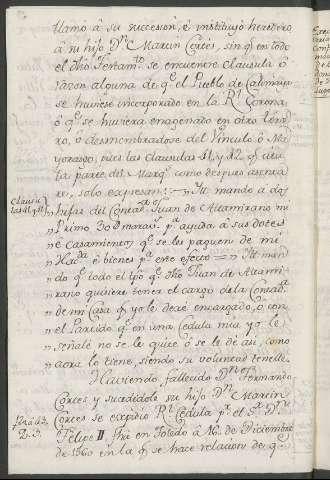 llamó à su succesion, è instituyó heredero
à su hijo Dn. Martin Cortes, sin qe. en todo
el dho Testamto. se encuentre clausula ó
razon alguna de qe. el Pueblo de
se huviese incorporado en la Rl. Corona,
ó qe. se huviera enagenado en otro
ó desmembradose del Vinculo ó Ma-
yorasgo, pues las Clausulas 41, y 42 qe.
parte del Marqs. como despues
, solo expresan: Itt mando a dos
Clausulas 41, y 42
hijas del Contadr. Juan de Altamirano mi
Primo 30 D maravs. pa. ayuda à sus dotes
è Casamientos qe. se les paguen de mi
Hacda. è bienes pa. este efecto = Itt man-
do qe. todo el tpo. qe. dho Juan de Altami-
rano quisiere tener el cargo de la Contada.
de mi Casa qe. yo le dexé encargado, ó con
el Partido qe. en una Cedula mia yo le
señalé no se le quite ó se le dé asi, como
aora lo tiene, siendo su voluntad tenerle
Haviendo fallecido Dn. Fernando
Cortes y sucedidole su hijo Dn. Martin
Cortes se expidio Rl. Cedula pr. el Sr. Dn.
Felipe II, fha en Toledo à 16 de Diciembre
de 1560 en la qe. se hace relacion de qe.